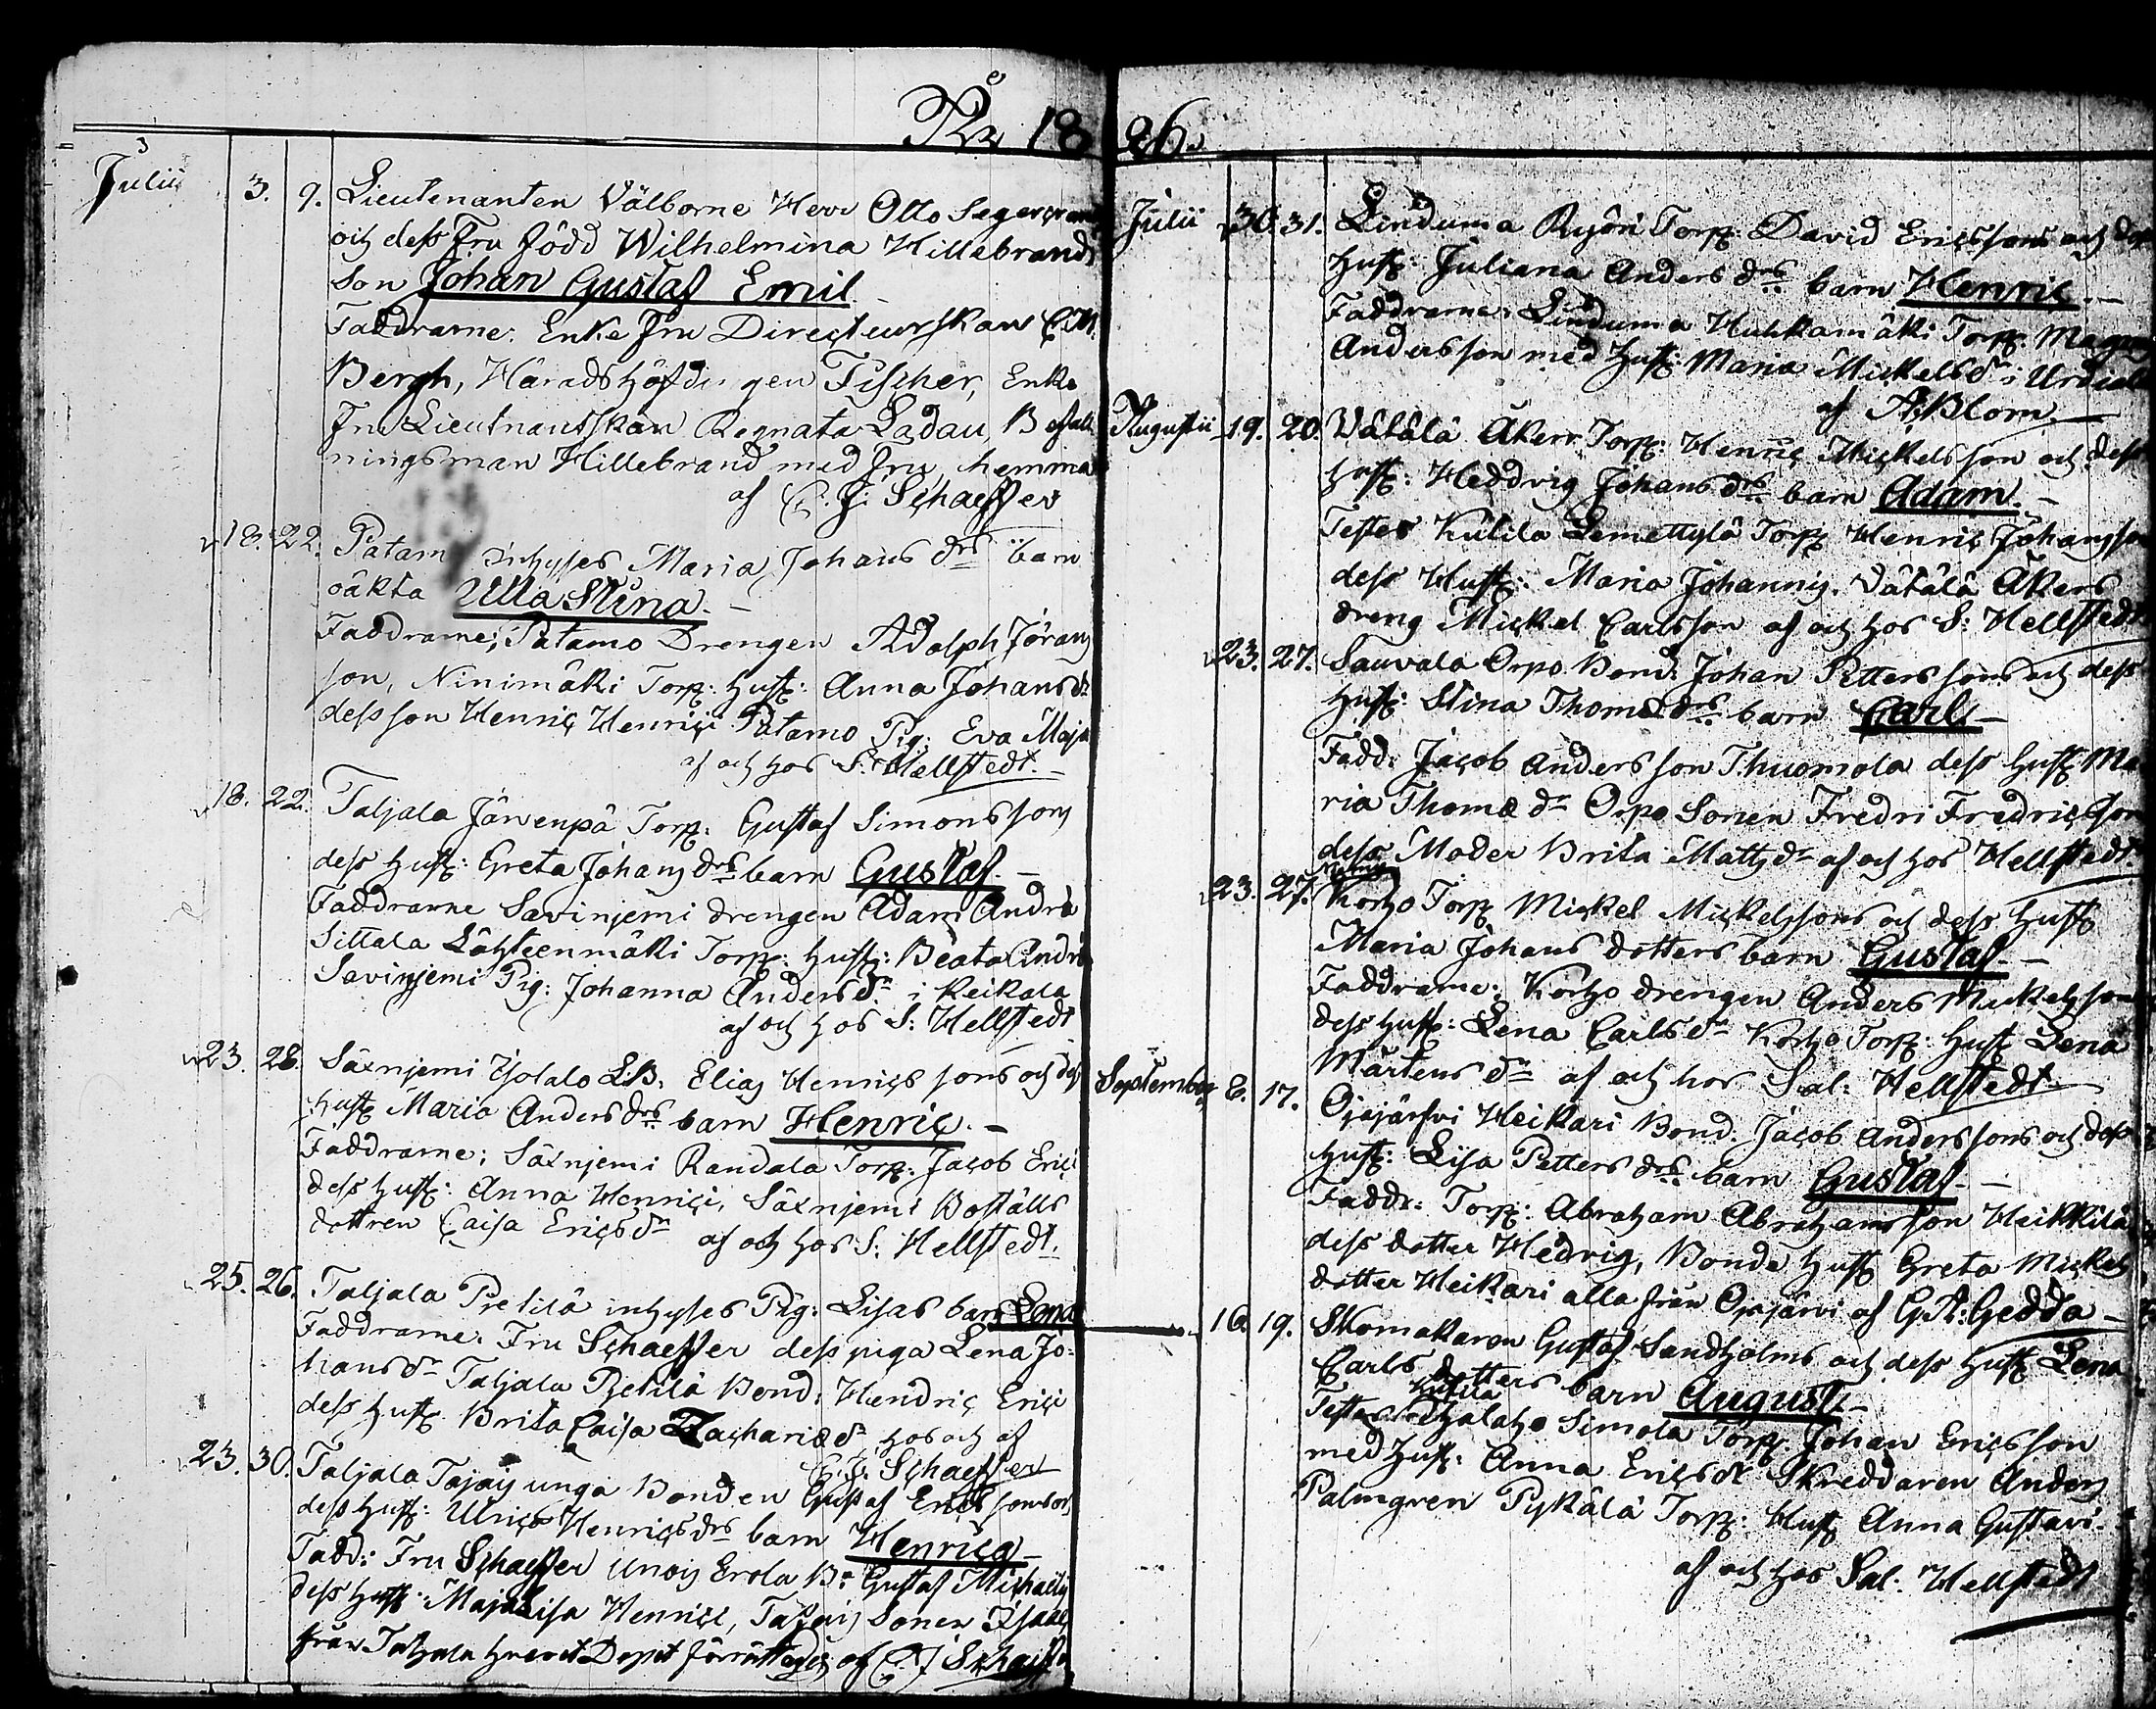 År 1826.
Julii 3. 9. Lieutenanten Välborne Herr Otto Segercrantz
och dess Fru född Wilhelmina Hillebrands
Son Johan Gustaf Emil
Faddrarne: Enke Fru Directeurskan C.M.
Bergh, Häradshöfdingen Fischer, Enke
Fru Lieutnantskan Regnata Ladau, Befall
ningsman Hillebrand med fru, hemma
af C. J. Schaeffer
18. 22. Patamo inhyses Maria Johans drs barn
oäkta Ulla Stina. –
Faddrarne; Patamo Drengen Adolph Jörans
son, Ninimäki Torp: hust: Anna Johansdr
dess son Henric Henrici Patamo Pig: Eva Maja
af och hos S. Hellstedt. –
18. 22. Taljala Järvenpä Torp: Gustaf Simonssons
dess hust: Greta Johans drs barn Gustaf. –
Faddrarne Savinjemi drengen Adam Andræ
Sittala Lähteenmäki Torp: hust: Beata Andræ
Savinjemi Pig: Johanna Anders dr i Keikala
af och hos S: Hellstedt
23. 28. Säxnjemi Isotalo L.B. Elias Henrics sons och dess
hust Maria Anders drs barn Henric. –
Faddrarne; Säxnjemi Randala Torp: Jacob Erici
dess hust: Anna Henrici, Säxnjemi Boställs
dottren Caisa Erics dr af och hos S: Hellstedt.
25. 26. Taljala Pretilä inhyses Pig: Lisas barn Lena
Faddrarne: Fru Schaeffer dess piga Lena Jo-
hans dr Taljala Pretilä Bond: Hendric Erici
dess hust Brita Caisa Zachariædr hos och af
C. J. Schaeffer
23. 30. Taljala Tapais unga Bonden Gustaf Erics sons och
dess hust: Ulrica Henrics drs barn Henrica –
Fadd: Fru Schaeffer Unois Erola Br Gustaf Michaelis
dess hust: Maja Lisa Henrici, Tapais Sonen Isaac
från Taljala hvaret Dopet förrättades af C. J. Schaeffer
Julii 30. 31. Linduma Ryöni Torp: David Ericssons och dess
hust: Juliana Anders drs barn Henric. –
Faddrarne: Linduma Huhkamäki Torp: Magnus
Andersson med hust: Maria Mickels dr i Urdiala
af A. Blom. –
Augustii 19. 20. Vätälä Åkers Torp: Henric Mickelsson och dess
hust: Heddvig Johans drs barn Adam. –
Testes Kulila Lemettylä Torp Henric Johansson
dess Hust: Maria Johannis. Vätälä Åkers
dreng Mickel Carlsson af och hos S: Hellstedt
23. 27. Sauvala Orpo Bond: Johan Petters sons och dess
hust: Stina Thomæ drs barn Carl –
Fadd: Jacob Andersson Thuomola dess hust Ma
ria Thomæ dr Orpo Sonen Fredri Fredricsson
dess Moder Brita Matts dr af och hos Hellstedt.
23. 27. Korho Torp Mickel Mickelssons och dess hust
Maria Johans dotters barn Gustaf. –
Faddrarne: Korho drengen Anders Mickelsson
dess hust: Lena Carls dr Korho Torp: hust Lena
Mårtens dr af och hos Sal: Hellstedt
September 6. 17. Ojajärfvi Heikari Bond: Jacob Anderssons och dess
hust: Lisa Petters drs barn Gustaf. –
Fadd: Torp: Abraham Abrahamsson Heikkilä
dess dotter Hedvig, Bonde hust Greta Mickels
dotter Heikari alla från Ojajärvi af G.A: Gedda –
16. 19. Skomakaren Gustaf Sandholms och dess hust Lena
Carls dotters barn August. –
Kulila
Testes Simola Torp Johan Ericsson
med hust: Anna Erics dr Skreddaren Anders
Palmgren Pykälä Torp: Hust Anna Gustavi.
af och hos Sal. Hellstedt